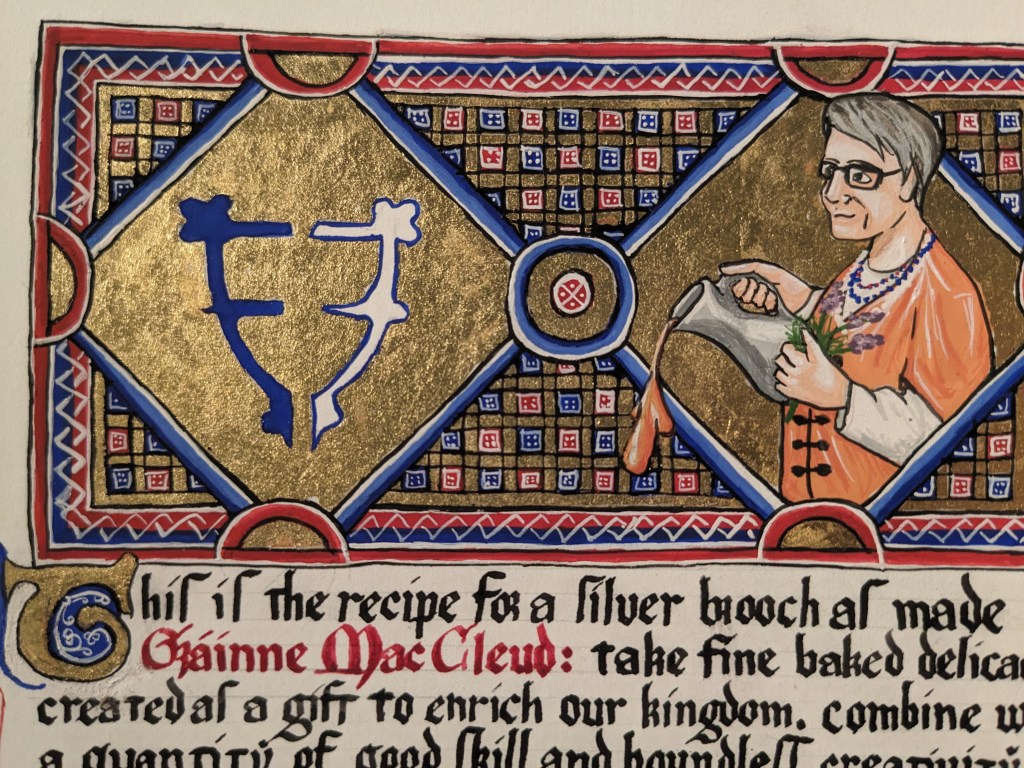 This is the recipe for a silver brooch as made
Gráinne Mac Cleud: take fine baked delica
created as a gift to enrich our kingdom. combine w
a quantity of good skill and boundless creativity